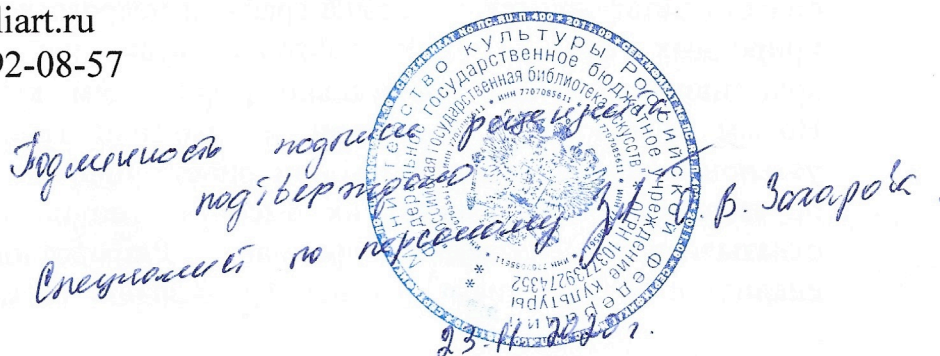 liart.ru
92-08-57
Подлинность подписи рецензии
подтверждаю
Специалист по персоналу В. Захарова
23.11.2020г.
Министерство культуры Российской Федерации
федеральное государственное бюджетное учреждение культуры
Российская государственная библиотека искусств
ИНН 7707085611